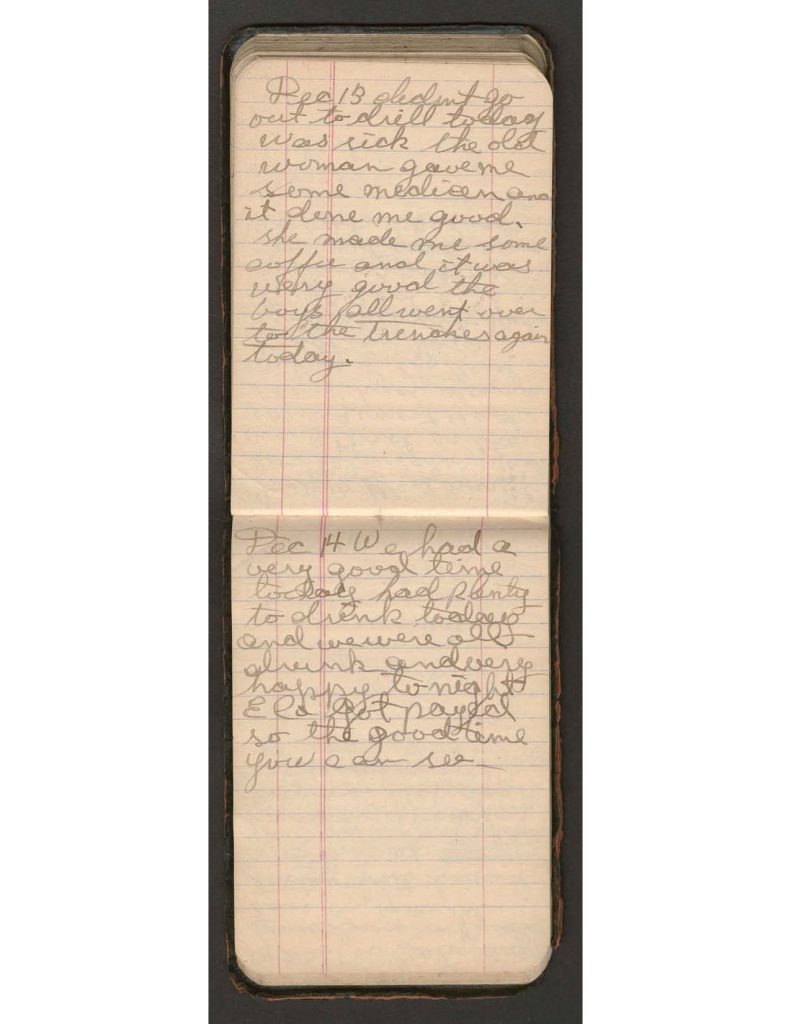 Dec 13 didnt go
out to drill today
was sick the old
woman gave me
some medicen and
it done me good.
she made me some
coffie and it was
very good the
boys all went over
too the trenches again
today.
Dec 14 We had a
very good time
today had plenty
to drink today
and we were all
drunk and very
happy to night
E Co got payed
so the good time
you can see